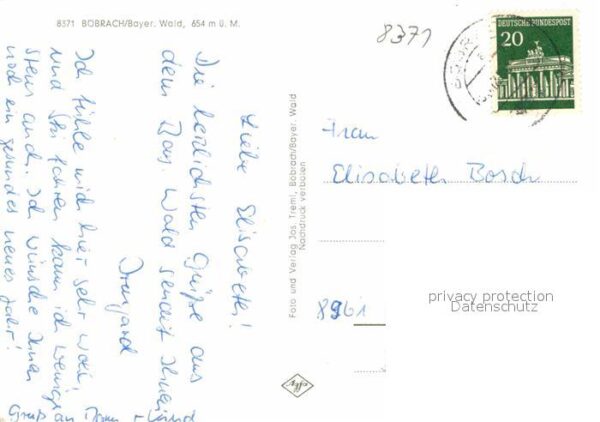 8371 BÖBRACH/Bayer. Wald, 654 m ü. M.
8371
DEUTSCHE BUNDESPOST
20
Liebe Elisabeth!
Die herzlichsten Grüße aus
dem Bay. Wald sendet Ihnen
Irmgard
Ich fühle mich hier sehr wohl,
und Ski fahren kann ich wenig
stens auch. Ich wünsche Ihnen
noch ein gesundes neues Jahr!
Gruß an Mann + Kind
Foto und Verlag Jos. Treml, Böbrach/Bayer. Wald
Nachdruck verboten
Frau
Elisabeth Bosch
8961
privacy protection
Datenschutz